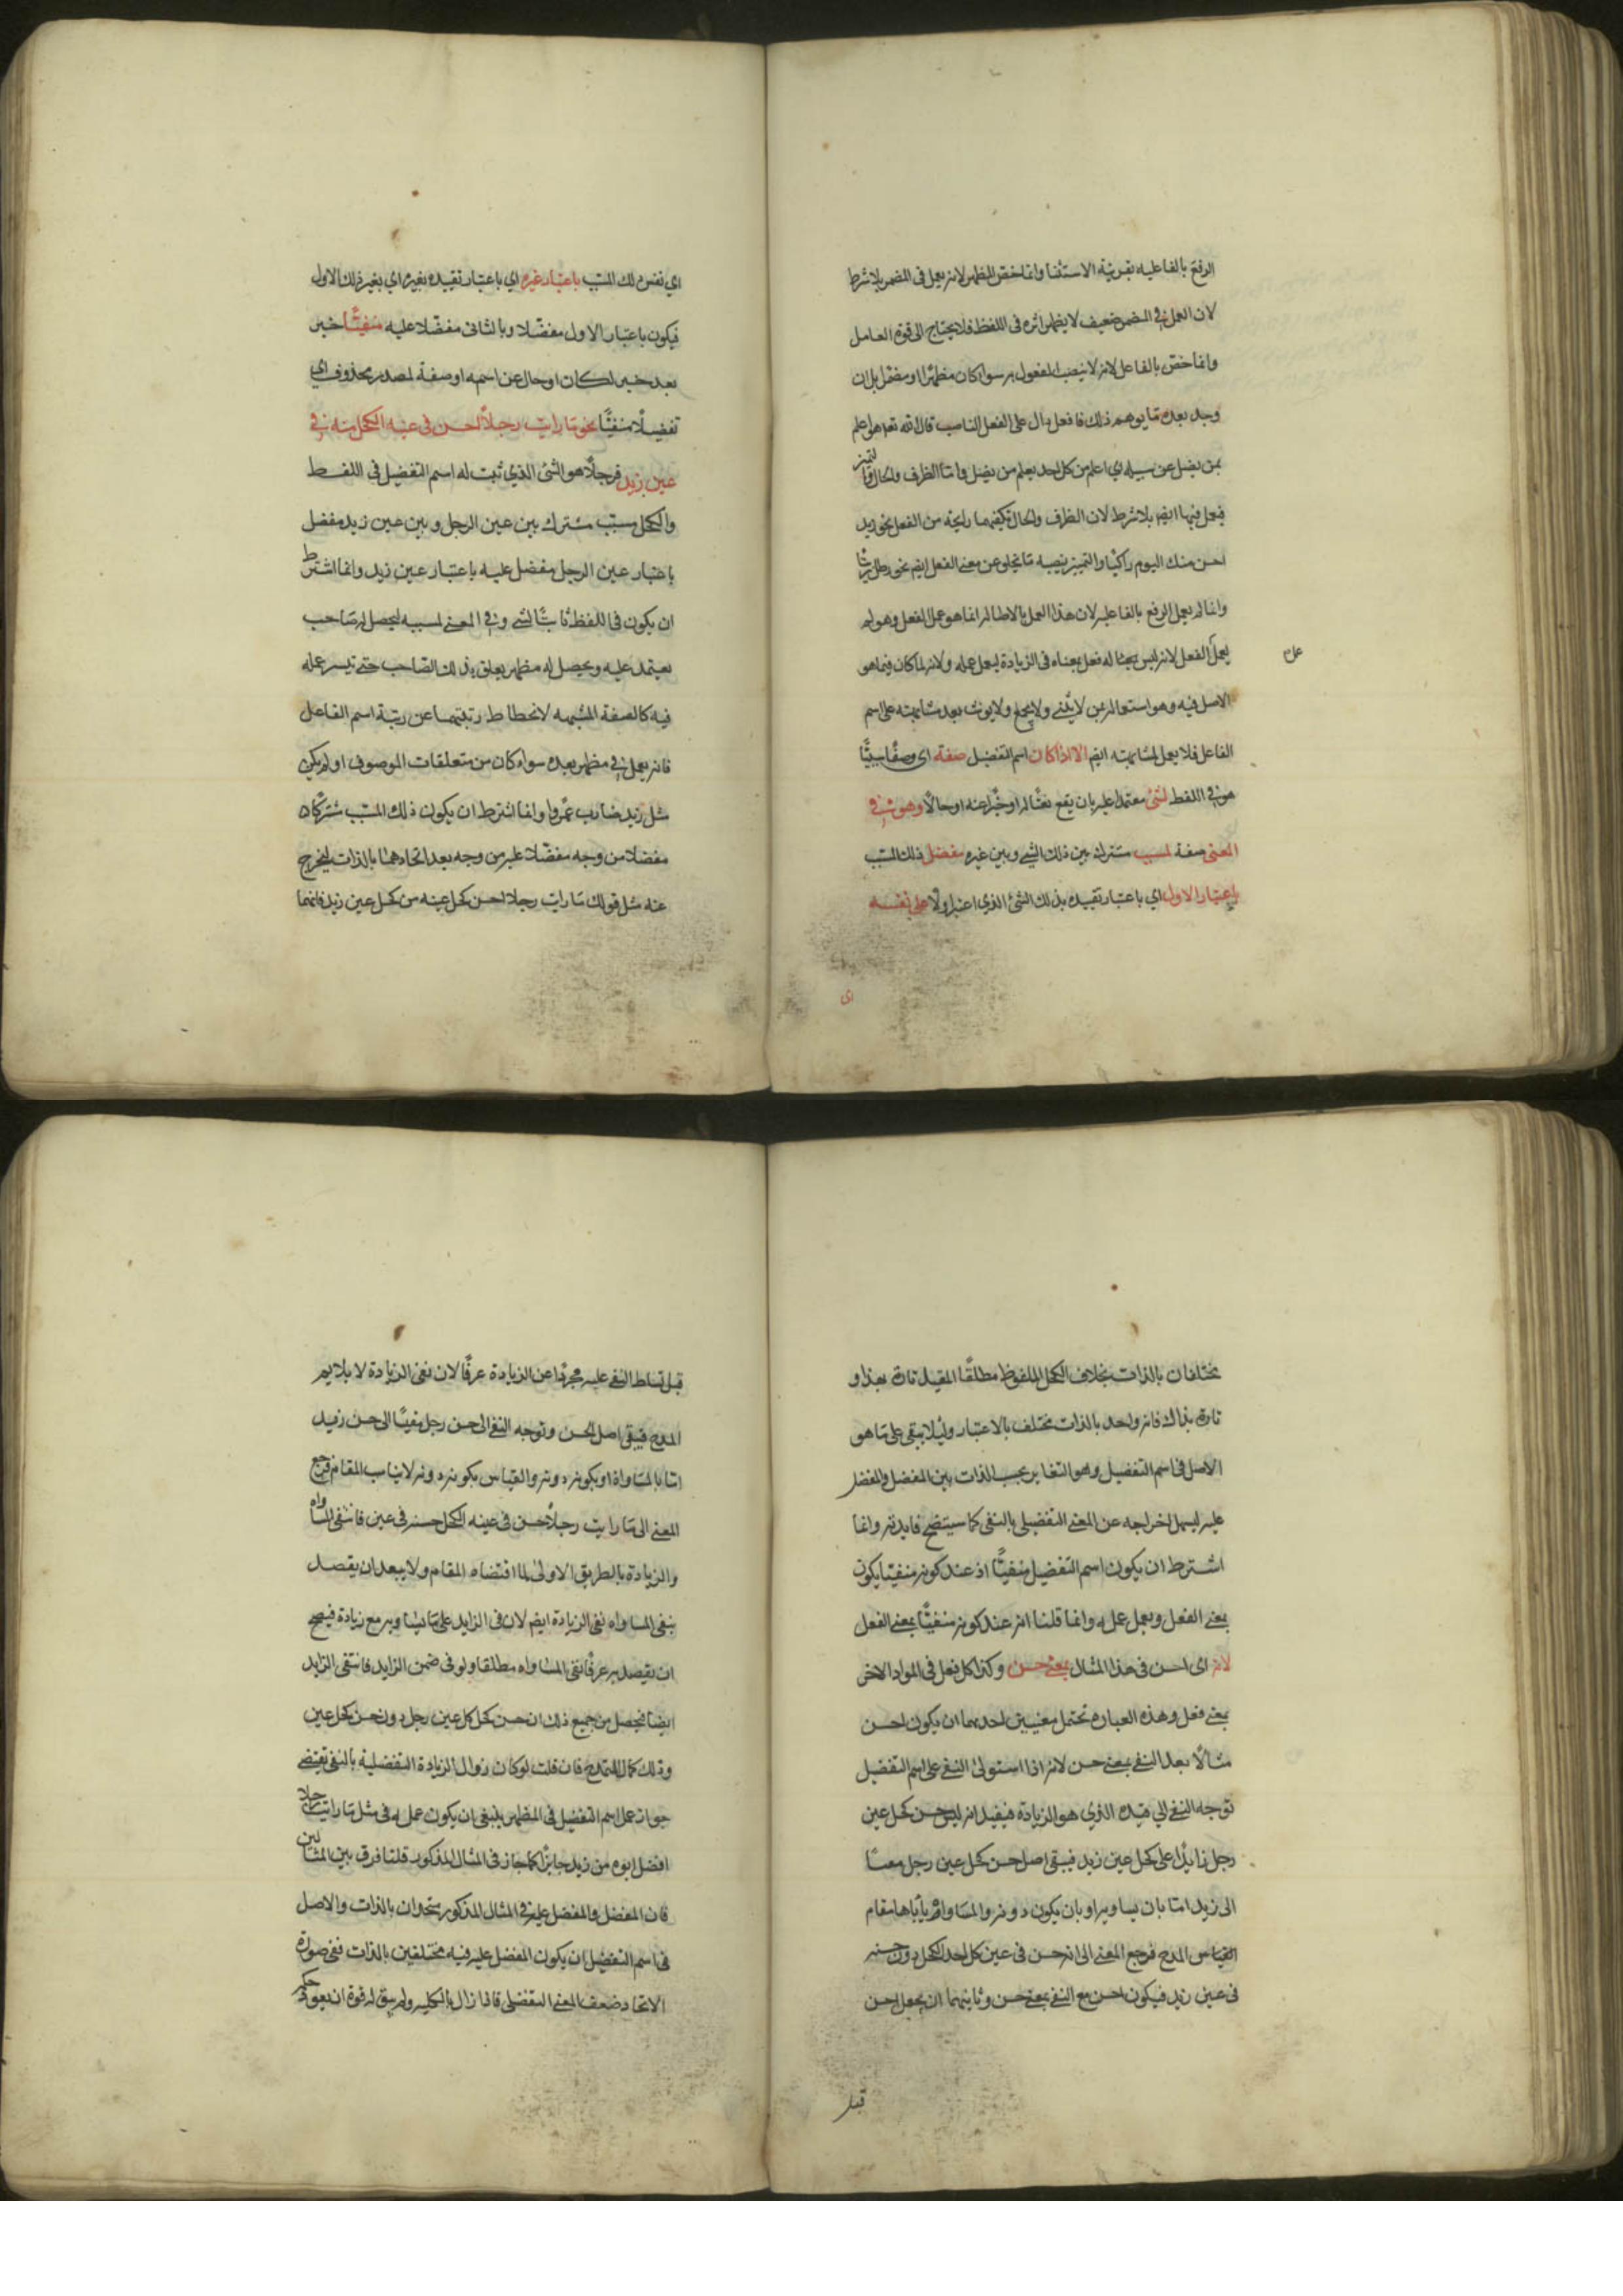 الرفع بالفاعلية بقرينة الاستثنا وانما خص المظهر لانه يعمل فى المضمر بلا شرط
لان العمل في المضمر ضعيف لا يظهر اثره فى اللفظ فلا يحتاج الى قوة العامل
وانما خص بالفاعل لانه لا ينصب المفعول به سواء كان مظهرا او مضمرا بل ان
وجد بعده ما يوهم ذلك فافعل دال على الفعل الناصب قال الله تعه هو اعلم
بمن يضل عن سبيله اي اعلم من كل احد يعلم من يضل واما الظرف والحال والتميز
فيعمل فيها ايضا بلا شرط لان الظرف والحال تكفيهما رايحة من الفعل نحو زيد
احسن منك اليوم راكبا والتميز ينصبه ما يخلو عن معنى الفعل ايضا نحو رطل زيتا
وانما لم يعمل الرفع بالفاعلية لان هذا العمل بالاصالة انما هو عمل الفعل وهو لم
يعمل الفعل لانه ليس بمثاله فعل بمعناه فى الزيادة ليعمل عمله ولانه لما كان فيما هو
عل
الاصل فيه وهو استعماله بمن لا يثنى ولا يجمع ولا يونث بعد مشابهته على اسم
الفاعل فلا يعمل لمشابهته ايضا الا اذا كان اسم التفضيل صفة اى وصفا سببيا
هو في اللفظ لشئ معتمدا عليه بان يقع نعتا له او خبرا عنه او حالا وهو في
المعنى صفة لمسبب مشترك بين ذلك الشئ وبين غيره مفضل ذلك المسبب
باعتبار الاول اي باعتبار تقييده بذلك الشئ الذي اعتبر اولا على نفسه
اى
اي نفس ذلك المسبب باعتبار غيره اي باعتبار تقييده بغيره اي بغير ذلك الاول
فيكون باعتبار الاول مفضلا وبالثانى مفضلا عليه منفيا خبر
بعد خبر لكان او حال عن اسمه او صفة لمصدر محذوف اي
تفضيلا منفيا نحو ما رايت رجلا احسن فى عينه الكحل منه في
عين زيد فرجلا هو الشئ الذي ثبت له اسم التفضيل فى اللفظ
والكحل مسبب مشترك بين عين الرجل وبين عين زيد مفضل
باعتبار عين الرجل مفضل عليه باعتبار عين زيد وانما اشترط
ان يكون فى اللفظ ثابتا لشئ وفي المعنى لمسببه ليحصل له صاحب
يعتمد عليه ويحصل له مظهر يعلق بذلك الصاحب حتى تيسر عمله
فيه كالصفة المشبهه لانحطاط رتبتهما عن رتبة اسم الفاعل
فانه يعمل في مظهر بعده سواء كان من متعلقات الموصوف او لم يكن
مثل زيد ضارب عمروا وانما اشترط ان يكون ذلك المسبب مشتركا
مفضلا من وجه مفضلا عليه من وجه بعد اتحادهما بالذات ليخرج
عنه مثل قولك ما رايت رجلا احسن كحل عينه من كحل عين زيد فانهما
مختلفان بالذات بخلاف الكحل الملفوظ مطلقا المقيد تارة بهذا و
تارة بذاك فانه واحد بالذات مختلف بالاعتبار وليلا يبقى على ما هو
الاصل فى اسم التفضيل وهو التغاير بحسب الذات بين المفضل والمفضل
عليه ليسهل اخراجه عن المعنى التفضيلى بالنفى كما سيتضح فايدته وانما
اشترط ان يكون اسم التفضيل منفيا اذ عند كونه منفيا يكون
بمعنى الفعل ويعمل عمله وانما قلنا انه عند كونه منفيا بمعنى الفعل
لانه اى احسن فى هذا المثال بمعنى حسن وكذا كل فعل فى المواد الاخر
بمعنى فعل وهذه العبارة تحتمل معنيين احديهما ان يكون احسن
مثالا بعد النفى بمعنى حسن لانه اذا استولى النفى على اسم التفضيل
توجه النفى الى قيده الذي هو الزيادة فيفيد انه ليس حسن كحل عين
رجل زايدا على كحل عين زيد فيبقى اصل حسن كحل عين رجل مقيسا
الى زيد اما بان يساويه او بان يكون دونه والمساواة ياباها مقام
القياس المدح فرجع المعنى الى انه حسن فى عين كل احد الكحل دون حسنه
فى عين زيد فيكون احسن مع النفى بمعنى حسن وثانيهما ان يجعل احسن
قبل
قبل تسلط النفى عليه مجردا عن الزيادة عرفا لان نفى الزيادة لا يلايم
المدح فيبقى اصل الحسن وتوجه النفى الى حسن رجل مقيسا الى حسن زيد
اما بالمساواة او بكونه دونه والقياس بكونه دونه لا يناسب المقام فرجع
المعنى الى ما رايت رجلا حسن فى عينه الكحل حسنه فى عين فانتفى المساواه
والزيادة بالطريق الاولى لما اقتضاه المقام ولا يبعد ان يقصد
بنفى المساواه نفى الزيادة ايضا لان فى الزايد على ما يساويه مع زيادة فيصح
ان يقصد به عرفا نفى المساواه مطلقا ولو فى ضمن الزايد فانتفى الزايد
ايضا فحصل من جميع ذلك ان حسن كحل كل عين رجل دون حسن كحل عين
وذلك كمال التمدح فان قلت لو كان زوال الزيادة التفضلية بالنفى يقتضى
جواز عمل اسم التفضيل فى المظهر ينبغى ان يكون عمله فى مثل ما رايت رجلا
افضل ابوه من زيد جايزا كما جاز فى المثال المذكور قلنا فرق بين المثالين
فان المفضل والمفضل عليه فى المثال المذكور متحدان بالذات والاصل
فى اسم التفضيل ان يكون المفضل عليه فيه مختلفين بالذات ففى صورة
الاتحاد ضعف المعنى التفضلى فاذا زال بالكليه ولم يبق له قوة ان يعود حكمه